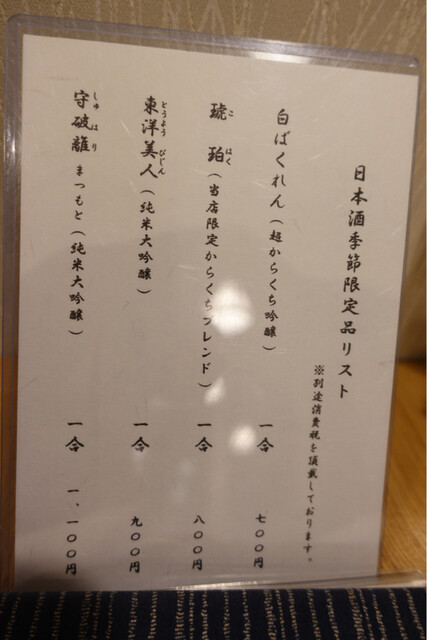 日本酒季節限定品リスト
※別途消費税を頂戴しております。
白ばくれん（超からくち吟醸） 一合 七〇〇円
琥珀（当店限定からくちブレンド） 一合 八〇〇円
こ はく
東洋美人（純米大吟醸） 一合 九〇〇円
とうよう びじん
守破離 まつもと（純米大吟醸） 一合 一、一〇〇円
しゅ は り